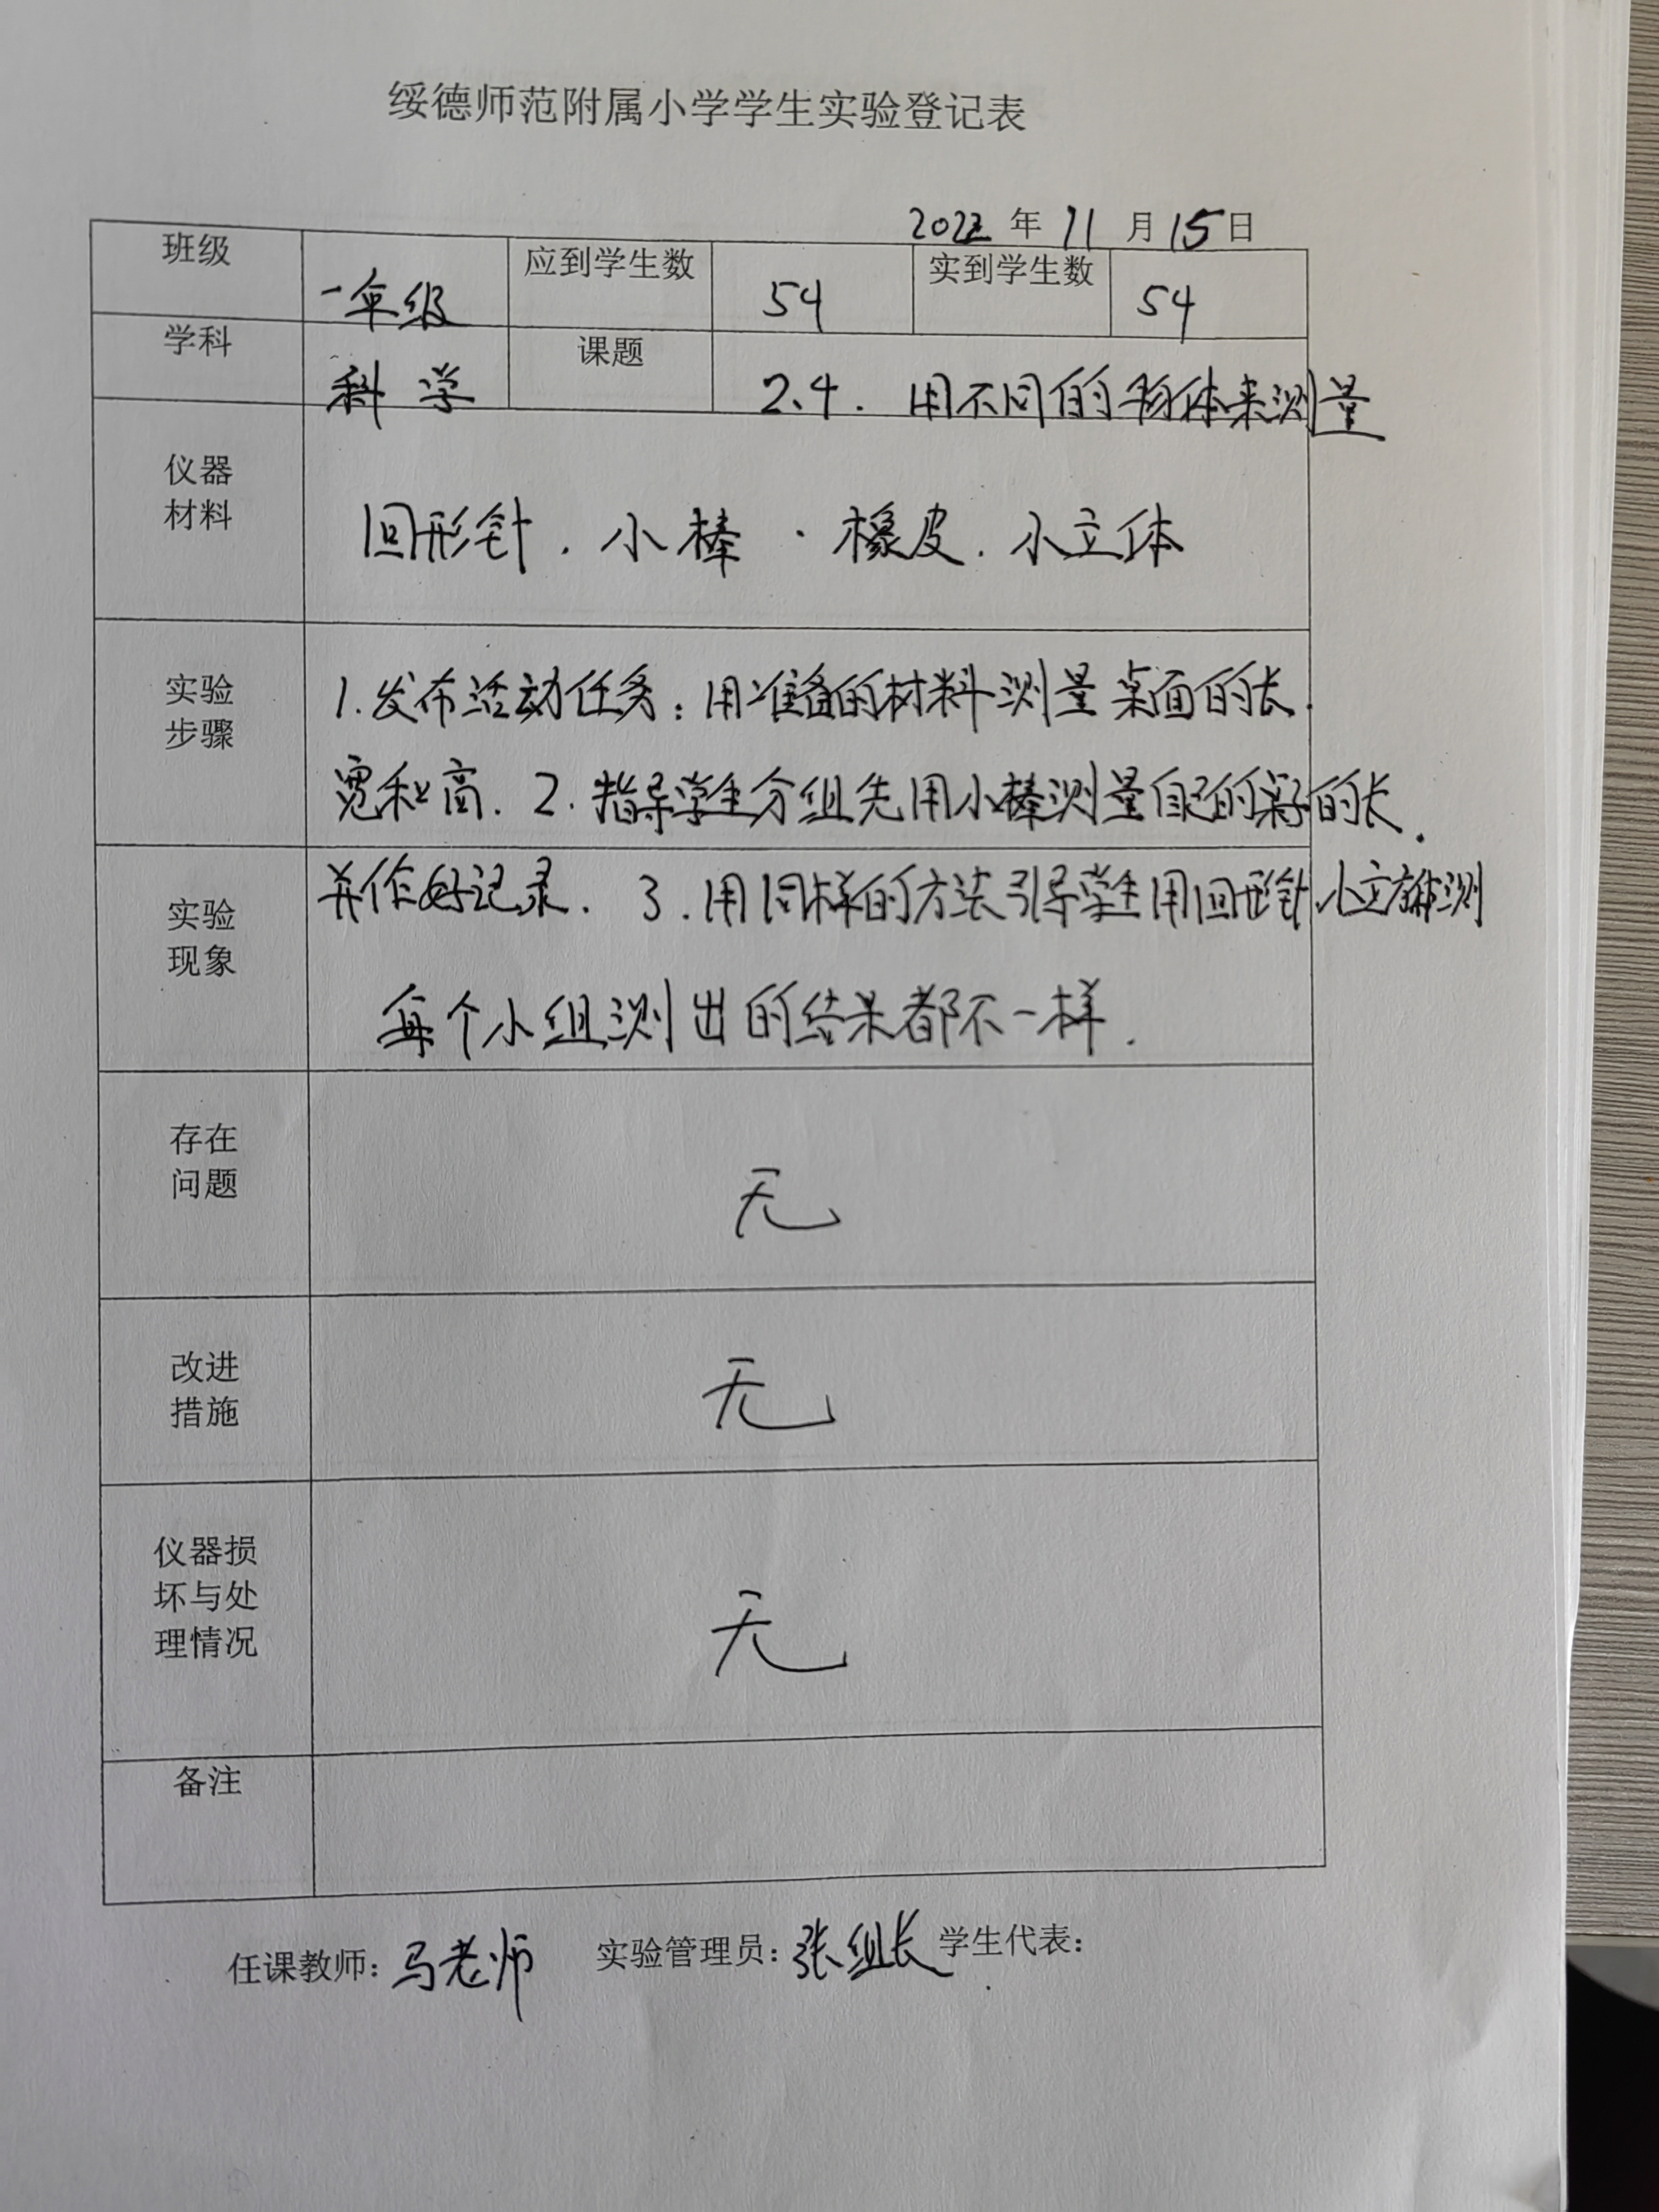 绥德师范附属小学学生实验登记表
2022 年 11 月 15 日
班级 一年级 应到学生数 54 实到学生数 54
学科 科学 课题 2.4. 用不同的物体来测量
仪器
材料
回形针. 小棒 . 橡皮. 小立体
实验
步骤
1.发布活动任务:用准备的材料测量桌面的长.
宽和高. 2.指导学生分组先用小棒测量自己的桌子的长.
实验
现象
并作好记录. 3.用同样的方法引导学生用回形针.小立方体测
每个小组测出的结果都不一样.
存在
问题
无
改进
措施
无
仪器损
坏与处
理情况
无
备注
任课教师: 马老师 实验管理员: 张组长 学生代表: